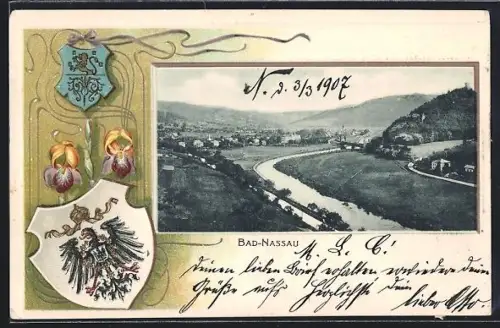 N. d. 3/3 1907
BAD-NASSAU
M. L. E.!
Deinen lieben Brief erhalten erwiedere dein
Grüße aufs Herzlichste Dein
lieber Otto.